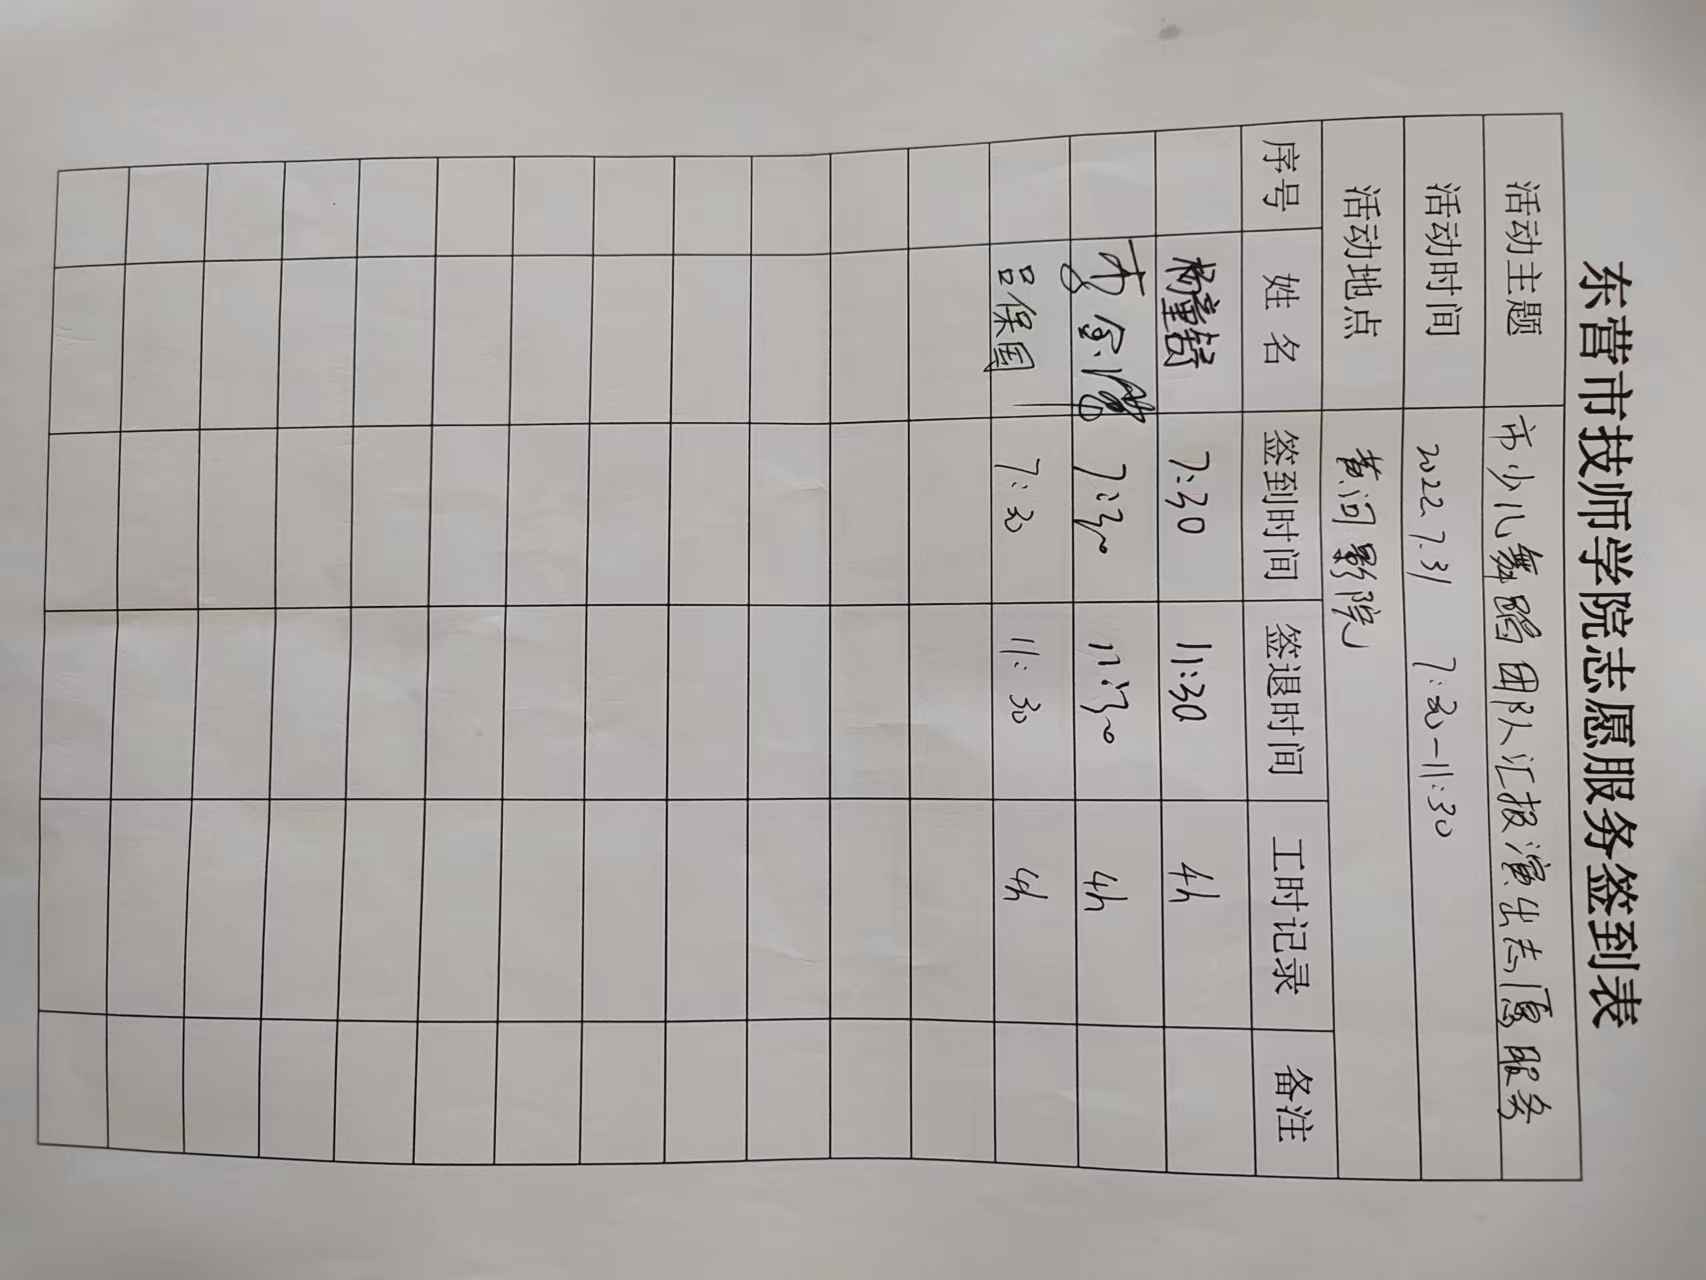 东营市技师学院志愿服务签到表
活动主题 市少儿舞蹈团队汇报演出志愿服务
活动时间 2022.7.31 7:30-11:30
活动地点 黄河影院
序号 姓名 签到时间 签退时间 工时记录 备注
杨童 7:30 11:30 4h
李金 7:30 11:30 4h
吕保国 7:30 11:30 4h